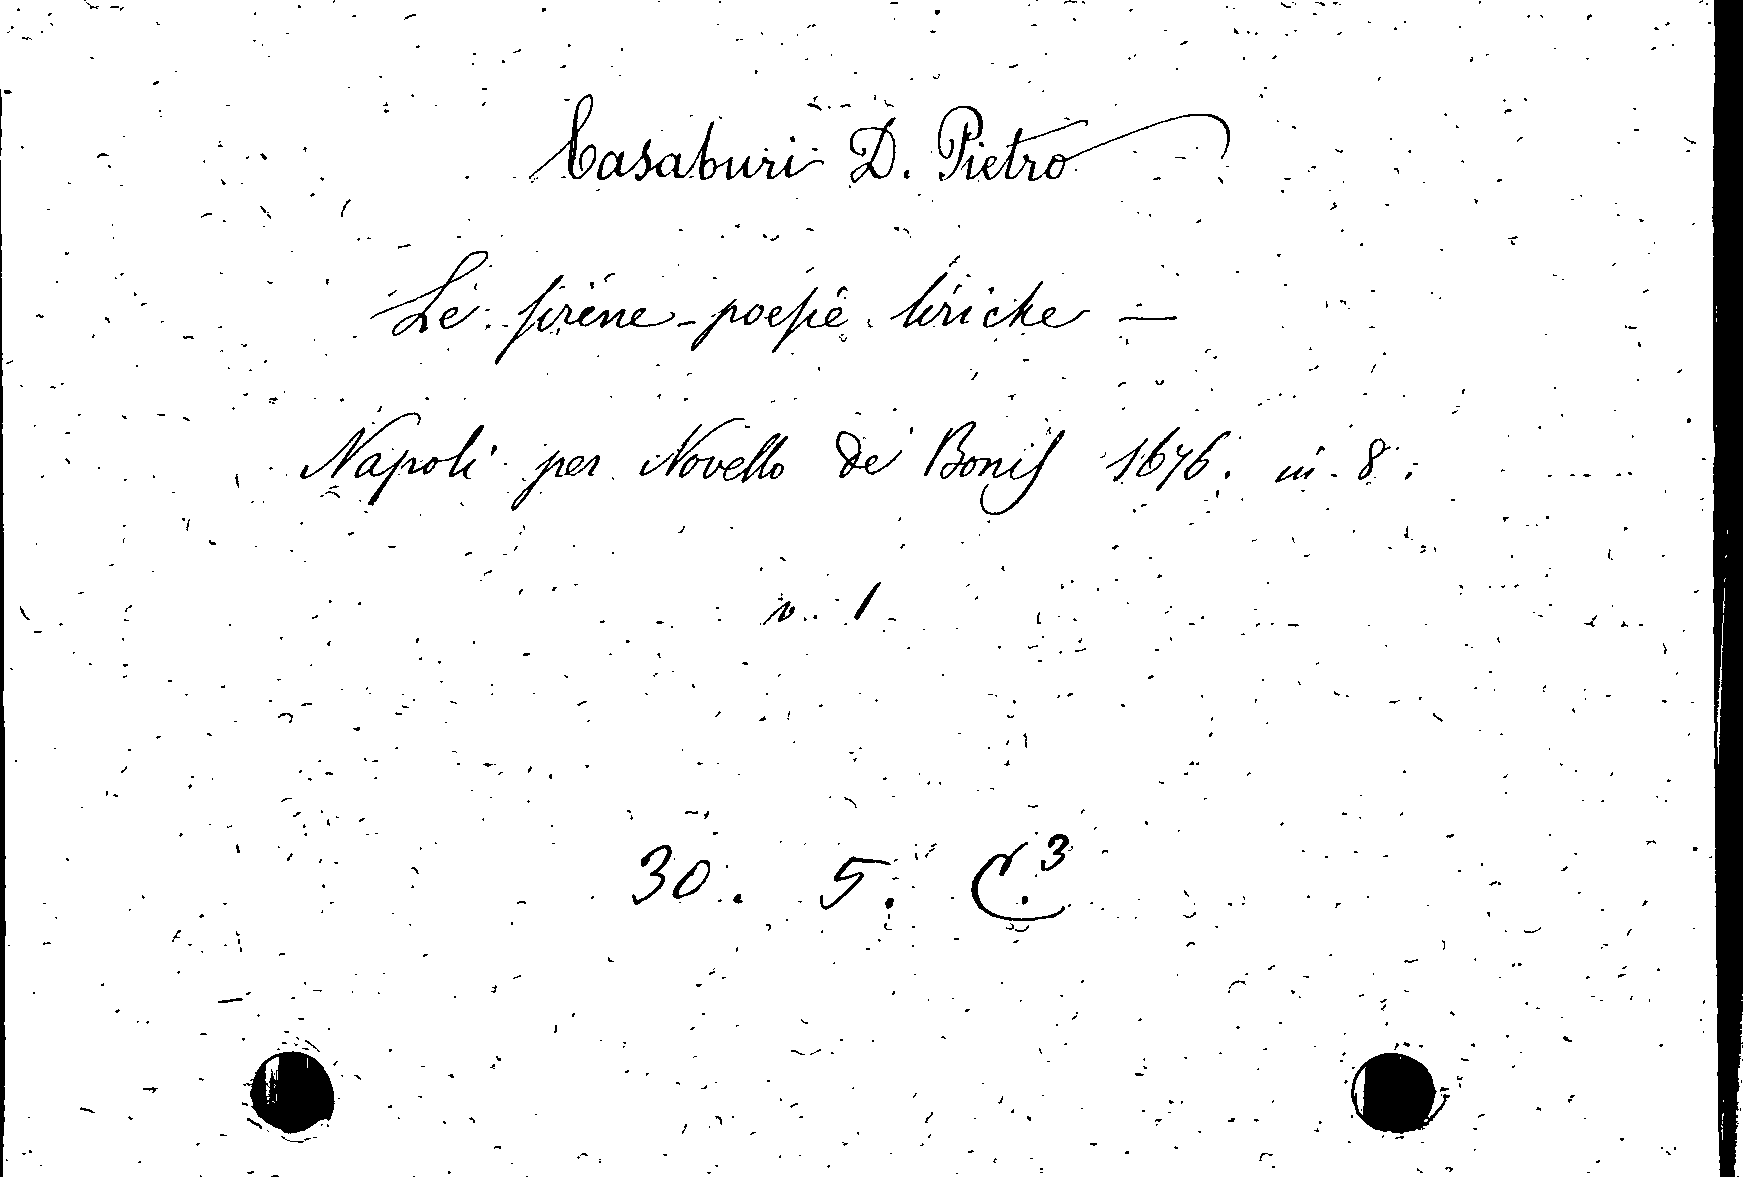 Casaburi D. Pietro
Le sirene - poesie liriche —
Napoli per Novello de Bonis 1676. in 8.
v. 1
30. 5. C.3